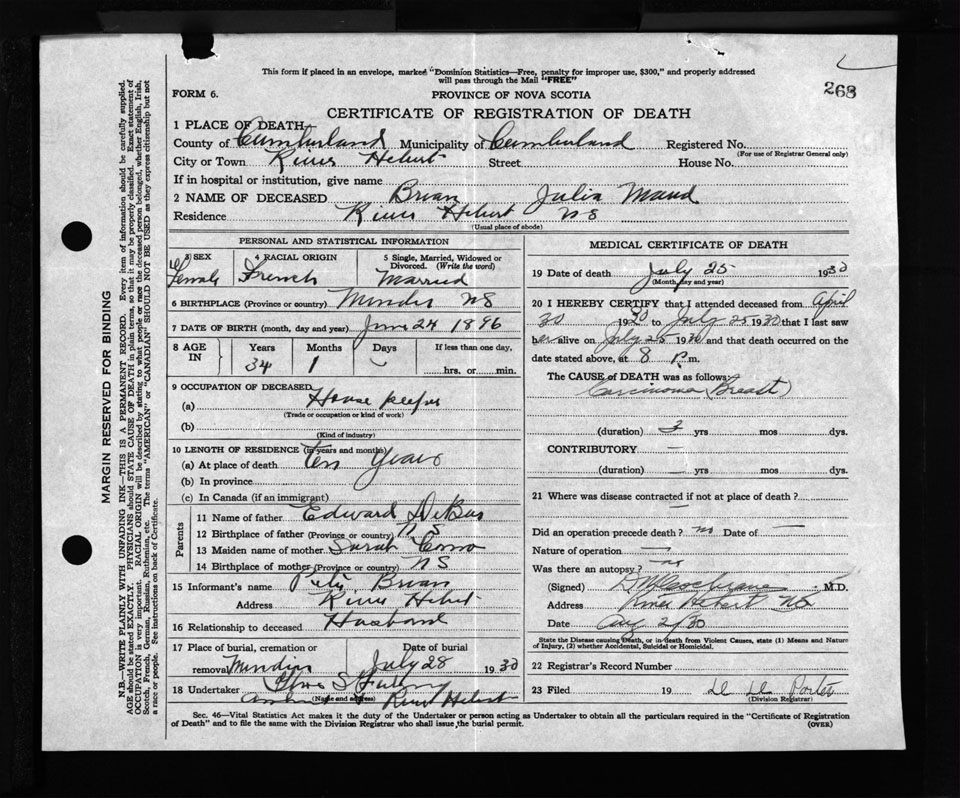 This form if placed in an envelope, marked "Dominion Statistics—Free, penalty for improper use, $300," and properly addressed
will pass through the Mail "FREE"
268
FORM 6.
PROVINCE OF NOVA SCOTIA
CERTIFICATE OF REGISTRATION OF DEATH
1 PLACE OF DEATH
County of Cumberland Municipality of Cumberland Registered No.
(For use of Registrar General only)
City or Town River Hebert Street House No.
If in hospital or institution, give name
2 NAME OF DECEASED Brian Julia Maud
Residence River Hebert NS
(Usual place of abode)
PERSONAL AND STATISTICAL INFORMATION
3 SEX 4 RACIAL ORIGIN 5 Single, Married, Widowed or
Divorced. (Write the word)
Female French Married
6 BIRTHPLACE (Province or country) Minudie NS
7 DATE OF BIRTH (month, day and year) June 24 1896
8 AGE IN Years Months Days If less than one day,
34 1 hrs. or min.
9 OCCUPATION OF DECEASED
(a) House keeper
(Trade or occupation or kind of work)
(b)
(Kind of industry)
10 LENGTH OF RESIDENCE (in years and months)
(a) At place of death ten years
(b) In province
(c) In Canada (if an immigrant)
Parents
11 Name of father Edward
12 Birthplace of father (Province or country) N S
13 Maiden name of mother Sarah
14 Birthplace of mother (Province or country) NS
15 Informant's name Peter Brian
Address River Hebert
16 Relationship to deceased Husband
17 Place of burial, cremation or Date of burial
removal Minudie July 28 1930
18 Undertaker
(Name and address) River Hebert
MEDICAL CERTIFICATE OF DEATH
19 Date of death July 25 1930
(Month, day and year)
20 I HEREBY CERTIFY that I attended deceased from April
30 1930 to July 25 1930 that I last saw
her alive on July 25 1930 and that death occurred on the
date stated above, at 8 P.m.
The CAUSE of DEATH was as follows:
Carcinoma (Breast)
(duration) yrs mos dys.
CONTRIBUTORY —
(duration) — yrs mos dys.
21 Where was disease contracted if not at place of death?
—
Did an operation precede death? no Date of —
Nature of operation —
Was there an autopsy? no
(Signed) Cochrane M.D.
Address River Hebert NS
Date Aug 2/30
State the Disease causing Death, or in death from Violent Causes, state (1) Means and Nature
of Injury, (2) whether Accidental, Suicidal or Homicidal.
22 Registrar's Record Number
23 Filed 19 Porter
(Division Registrar)
Sec. 46—Vital Statistics Act makes it the duty of the Undertaker or person acting as Undertaker to obtain all the particulars required in the "Certificate of Registration
of Death" and to file the same with the Division Registrar who shall issue the burial permit.
(OVER)
MARGIN RESERVED FOR BINDING
N.B.—WRITE PLAINLY WITH UNFADING INK—THIS IS A PERMANENT RECORD. Every item of information should be carefully supplied.
AGE should be stated EXACTLY. PHYSICIANS should STATE CAUSE OF DEATH in plain terms, so that it may be properly classified. Exact statement of
OCCUPATION is very important. RACIAL ORIGIN will be described by stating to what people or race the deceased person belonged, whether English, Irish,
Scotch, French, German, Russian, Ruthenian, etc. The terms "AMERICAN" or "CANADIAN" SHOULD NOT BE USED as they express citizenship but not
a race or people. See instructions on back of Certificate.